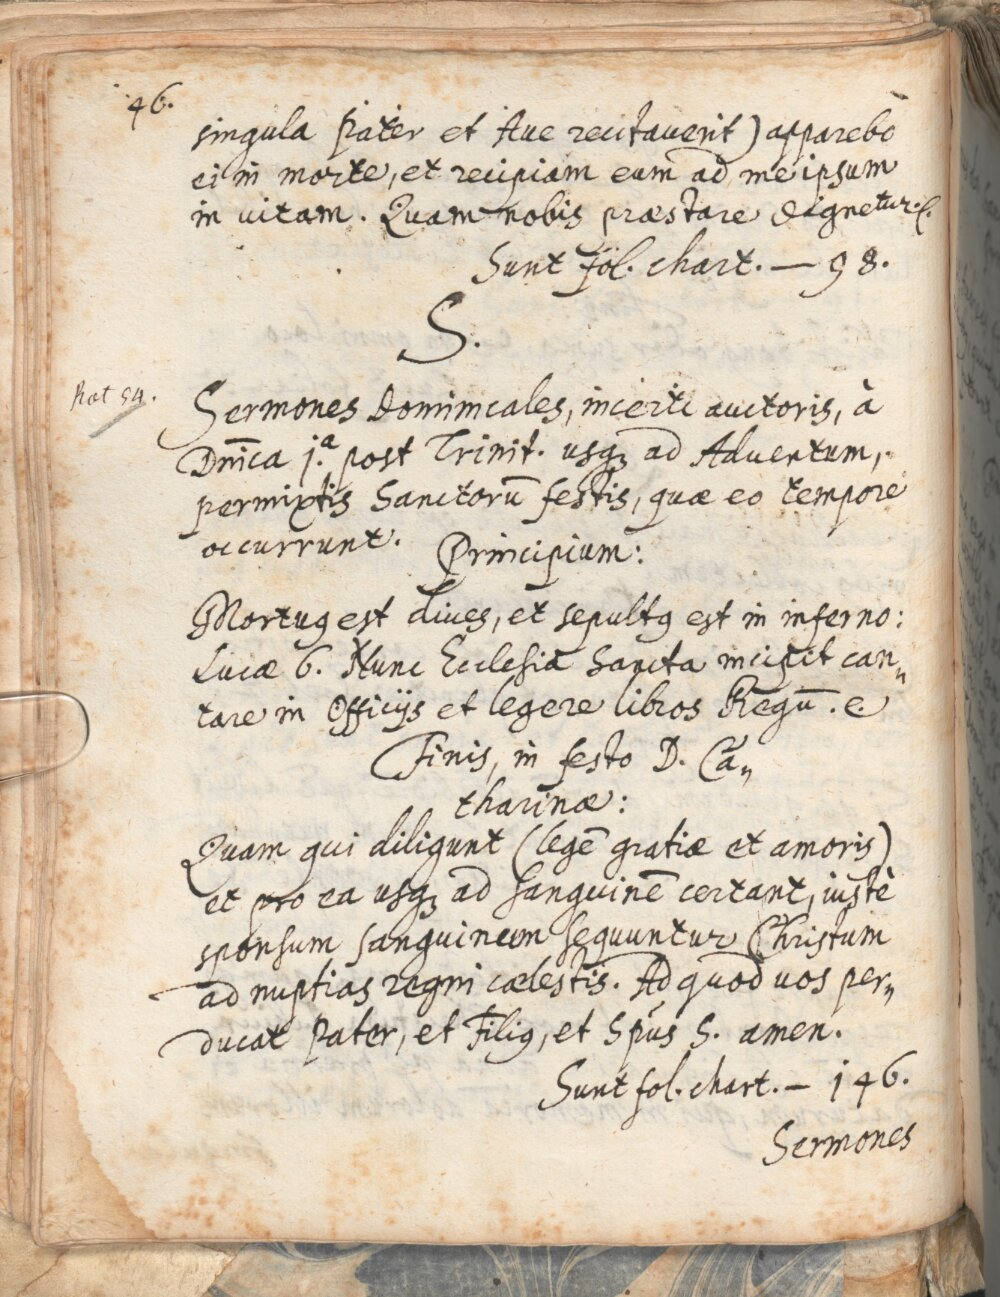 46.
singula Pater et Ave recitaverit) apparebo
ei in morte, et recipiam eum ad meipsum
in vitam. Quam nobis præstare dignetur. &.
Sunt fol. chart. — 98.
S.
Rot 54.
Sermones Dominicales, incerti auctoris, à
Dnica j.ª post Trinit. usqꝫ ad Adventum,
permixtis Sanctorū festis, quæ eo tempore
occurrunt. Principium:
Mortuꝰ est dives, et sepultꝰ est in inferno:
Lucæ 6. Nunc Ecclesia Sancta incipit can„
tare in Officijs et legere libros Regū. &
Finis, in festo D. Ca„
tharinæ:
Quam qui diligunt (legē gratiæ et amoris)
et pro ea usqꝫ ad sanguinē certant, iustè
sponsum sanguineum sequuntur Christum
ad nuptias regni cælestis. Ad quod vos per„
ducat Pater, et Filiꝰ, et Spūs S. amen.
Sunt fol. chart. — 146.
Sermones